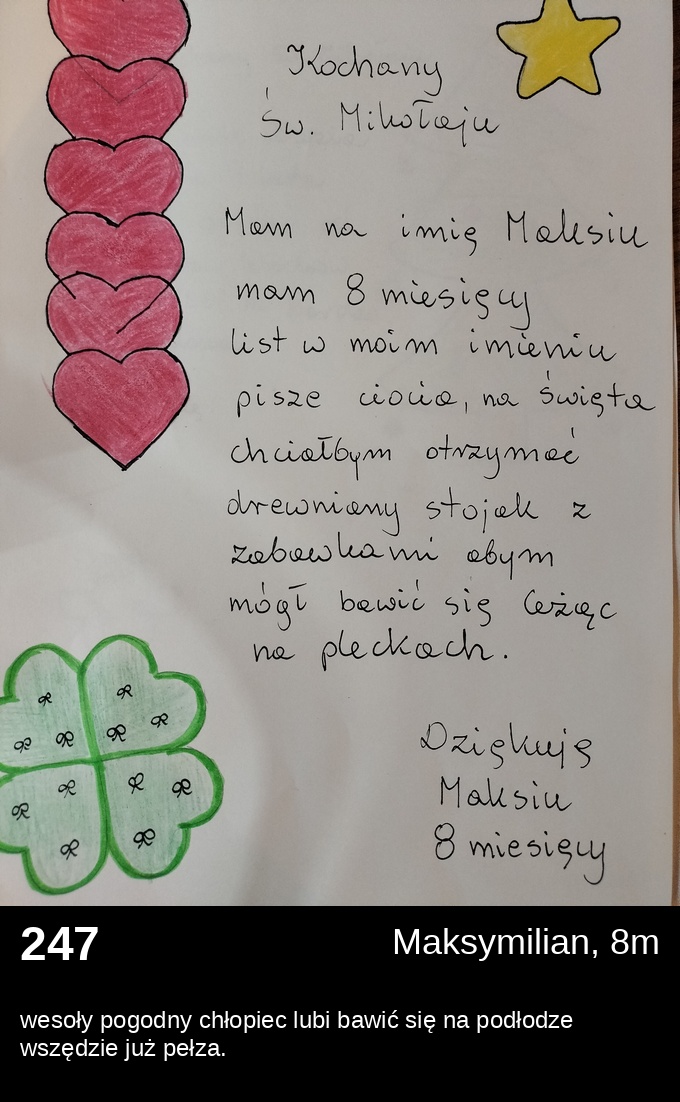 Kochany
Św. Mikołaju
Mam na imię Maksiu
mam 8 miesięcy
list w moim imieniu
pisze ciocia, na święta
chciałbym otrzymać
drewniany stojak z
zabawkami abym
mógł bawić się leżąc
na pleckach.
Dziękuję
Maksiu
8 miesięcy
247
Maksymilian, 8m
wesoły pogodny chłopiec lubi bawić się na podłodze
wszędzie już pełza.